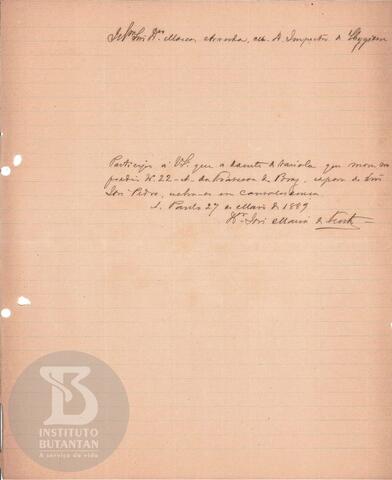 Illmo Snr Dr Marcos Arruda, M. D. Inspector de Hygiene
Participo á V.S. que a doente de variola que mora no
predio Nº 22-A da Travessa do Braz, esposa de
José Pedro, acha-se em convalescença.
S. Paulo 27 de Maio de 1889
Dr José Maria de
INSTITUTO
BUTANTAN
A serviço da vida